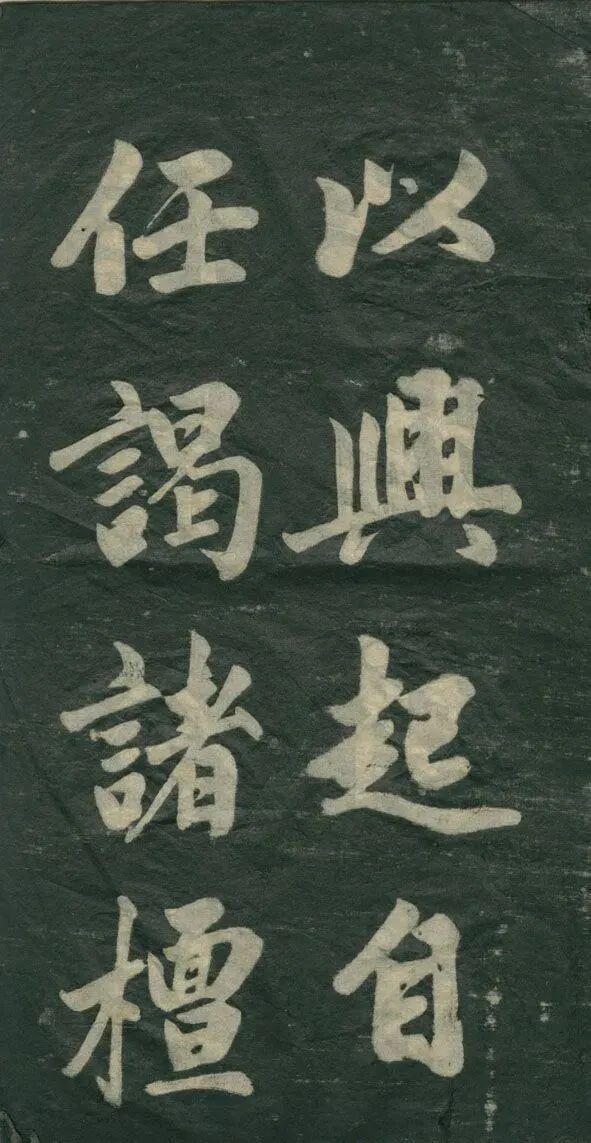 以興起自
任謁諸檀